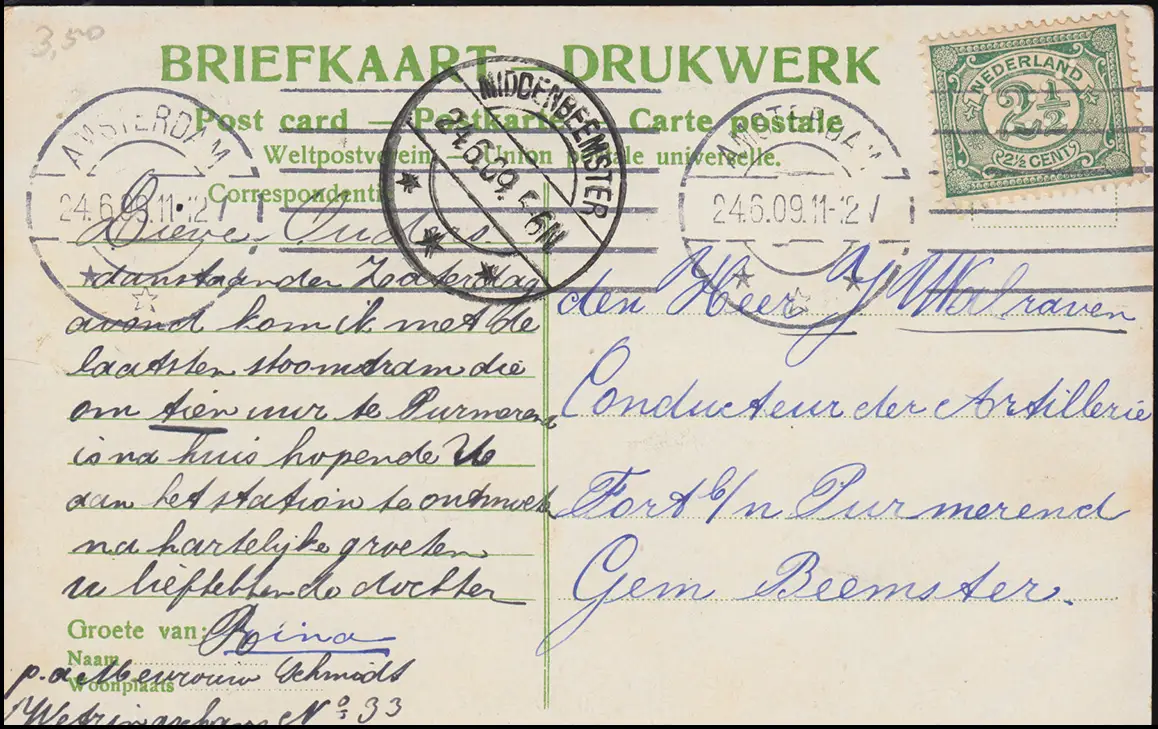 3,50
BRIEFKAART — DRUKWERK
Post card — Postkarte — Carte postale
Weltpostverein — Union postale universelle.
Correspondentie
AMSTERDAM
24.6.09.11-12V
MIDDENBEEMSTER
24.6.09. 5-6N
AMSTERDAM
24.6.09.11-12V
NEDERLAND
2½
2½ CENT
Lieve Ouders.
aanstaanden Zaterdag
avond kom ik met de
laatsten stoomtram die
om tien uur te Purmerend
is na huis hopende U
aan het station te ontmoete
na hartelijke groeten
u liefhebbende dochter
Groete van: Rina
Naam
Woonplaats
p.a Mevrouw Schmidt
Wetringschans No 33
den Heer J Walraven
Conducteur der Artillerie
Fort b/n Purmerend
Gem Beemster.